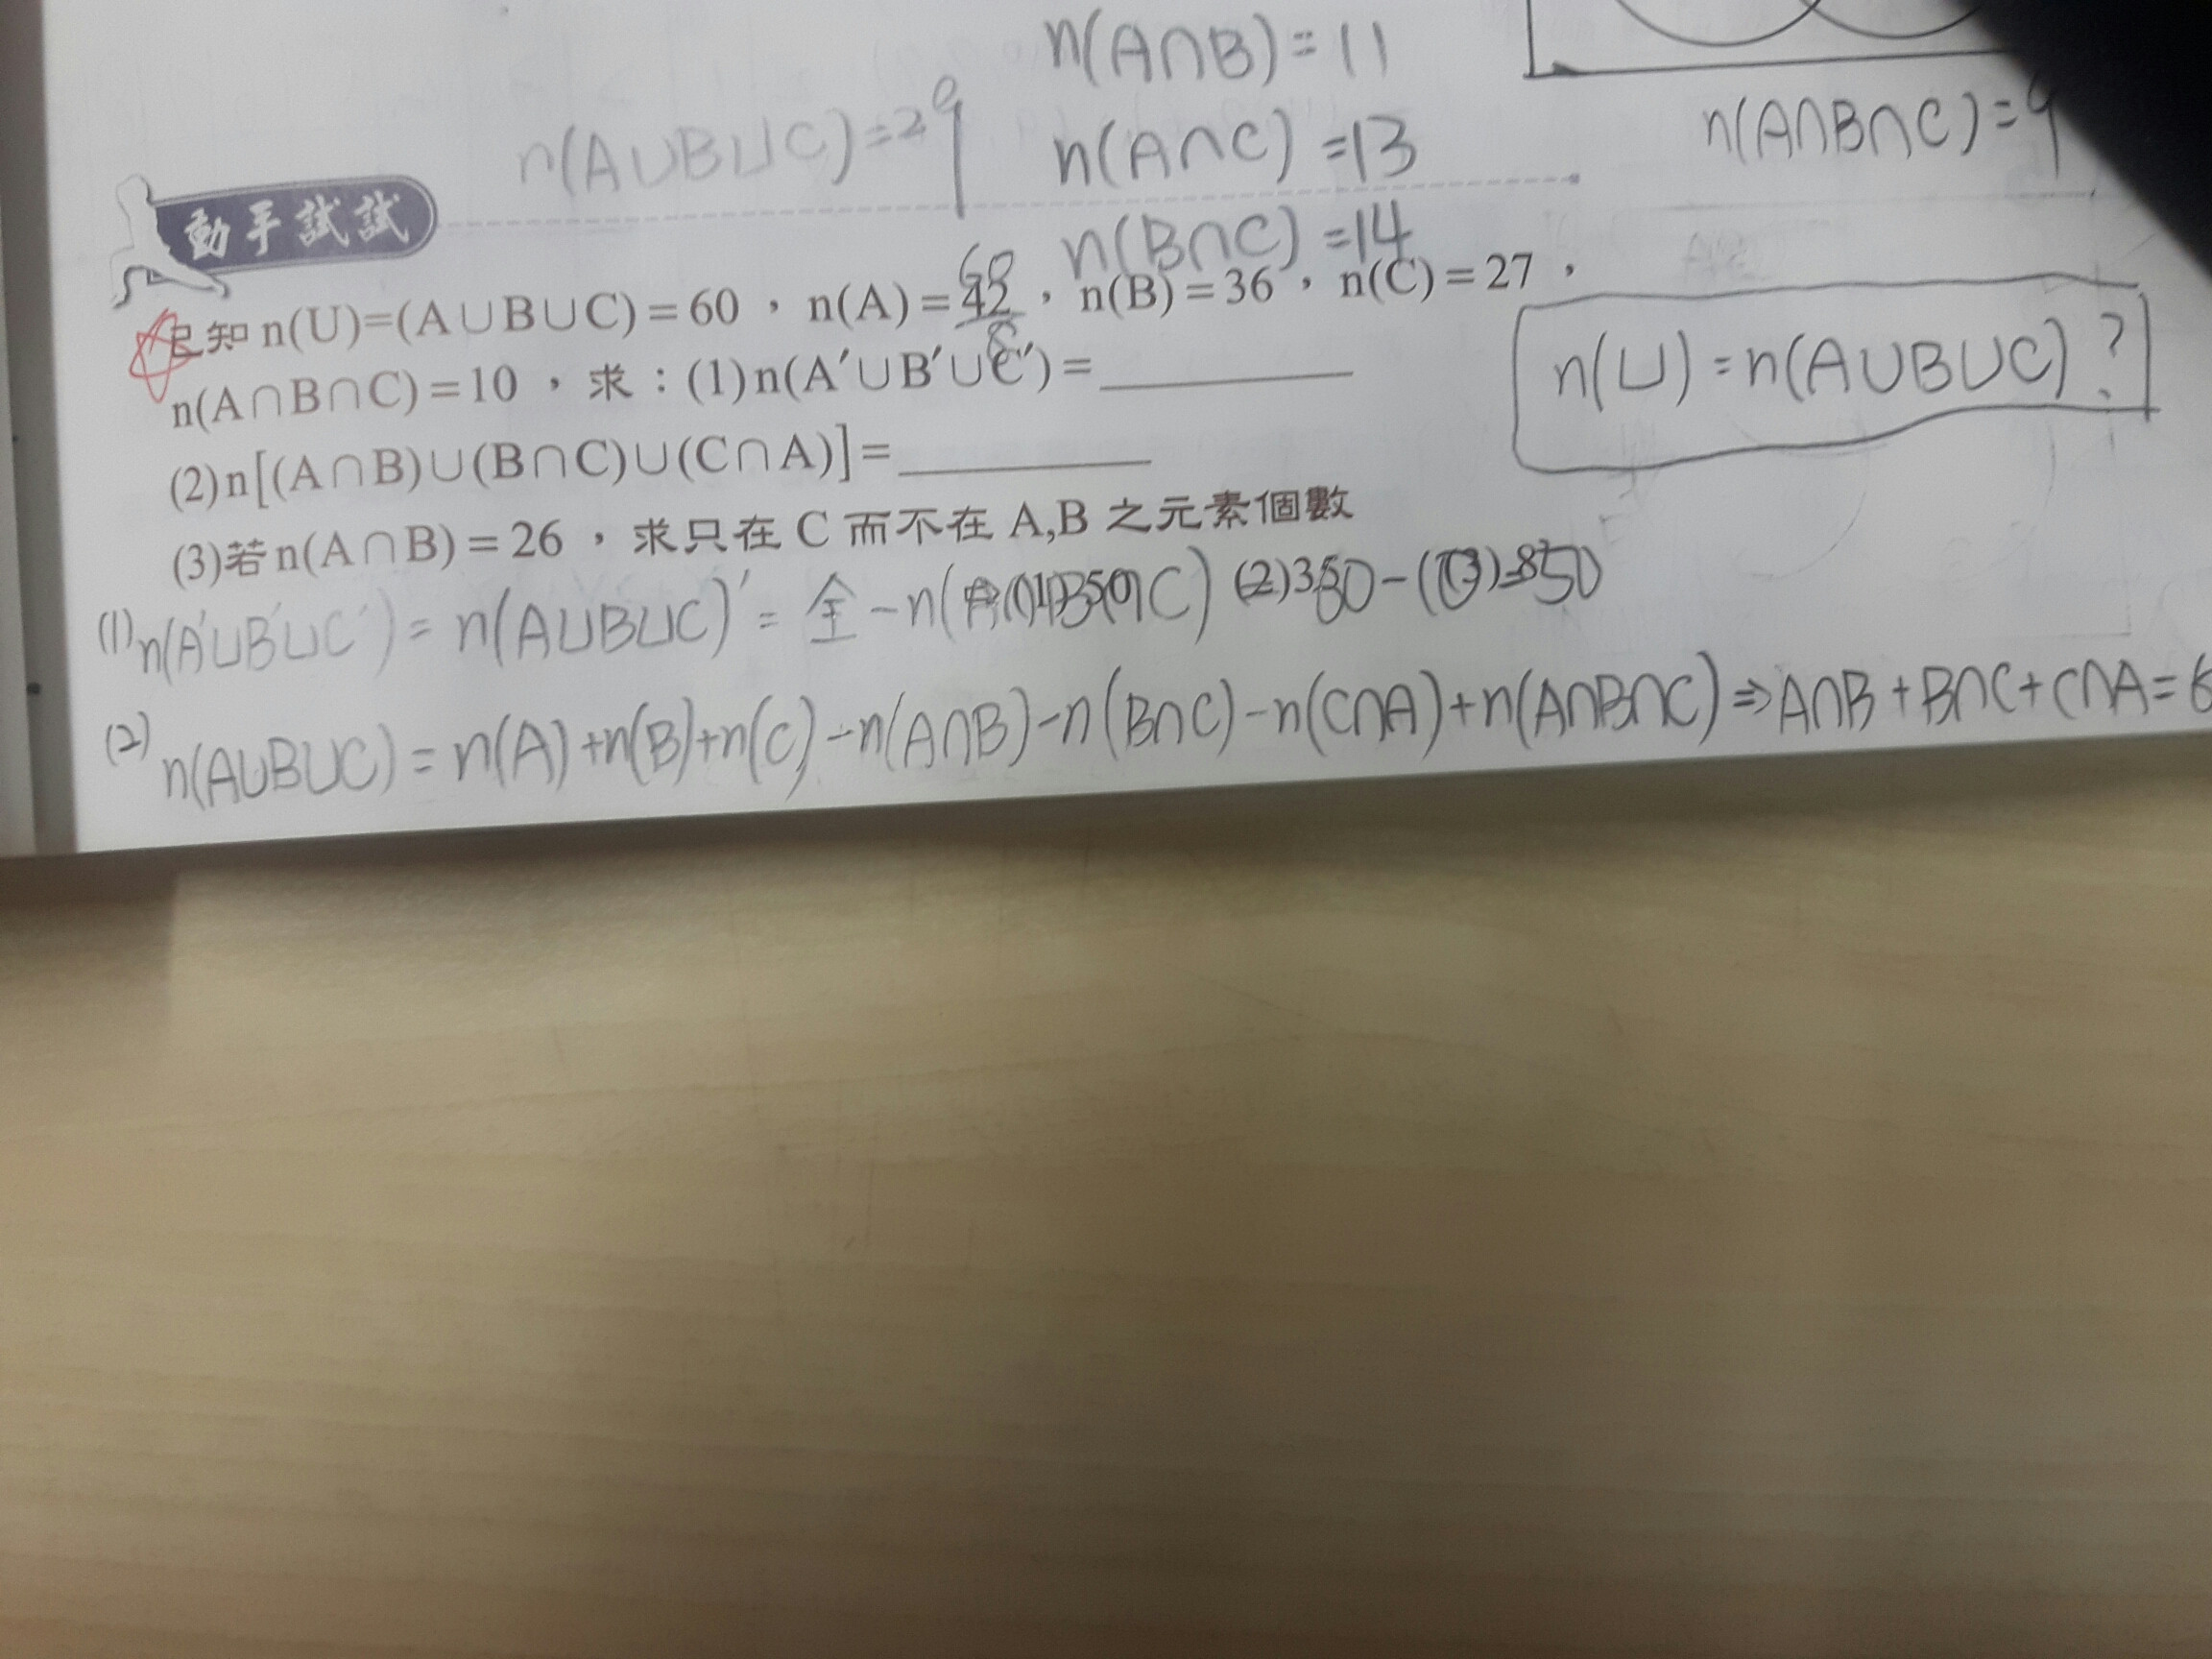 n(A∩B)=11
n(A∪B∪C)=29
n(A∩C)=13
n(A∩B∩C)=9
動手試試
n(B∩C)=14
60
已知 n(U)=(A∪B∪C)=60，n(A)=42，n(B)=36，n(C)=27，
n(A∩B∩C)=10，求：(1)n(A′∪B′∪C′)=
n(U)=n(A∪B∪C)?
(2)n[(A∩B)∪(B∩C)∪(C∩A)]=
(3)若n(A∩B)=26，求只在 C 而不在 A,B 之元素個數
(1)n(A′∪B′∪C′)=n(A∪B∪C)′=全-n(
(2)n(A∪B∪C)=n(A)+n(B)+n(C)-n(A∩B)-n(B∩C)-n(C∩A)+n(A∩B∩C)⇒A∩B+B∩C+C∩A=